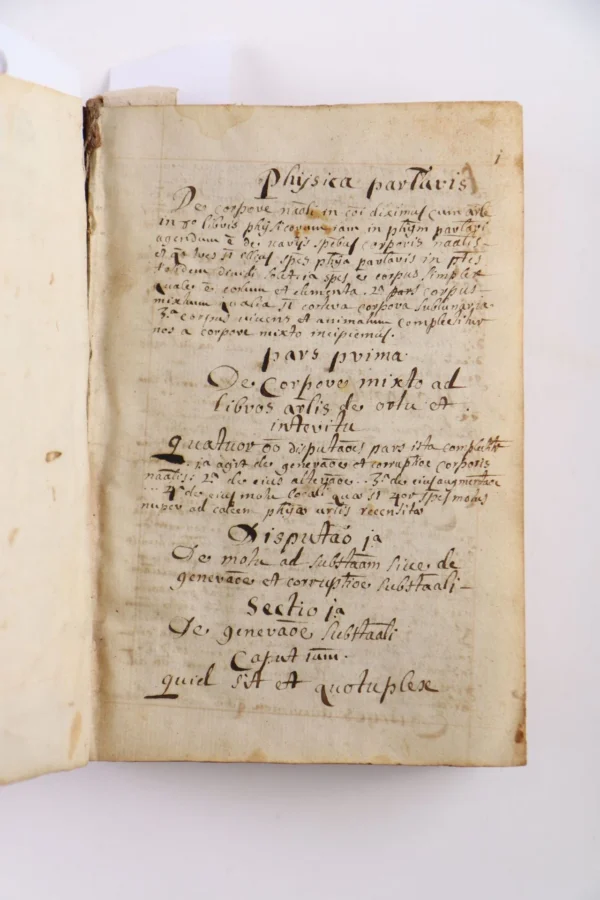 1
Physica partlaris
De corpore nāāli in cōi diximus cum arle
in 8o libris physicorum iam in physm partlari
agendum ē de varijs spēbus corporis nāālis
totidem
quale ē coelum et elementa. 2ᵃ pars corpus
mixtum qualia st coetera corpora sublunaria
3ᵃ corpus vivens et animatum complectitur
nos a corpore mixto incipiemus.
pars prima
De Corpore mixto ad
libros arlis de ortu et
interitu
Quatuor ōō disputāōēs pars ista complectitr
ja agit de generāōē et corruptiōē corporis
nāālis: 2ᵃ de ejus alterāōē.. 3ᵃ de ejus augmentāōē
4ᵃ de ejus motu locali quae st 4or spēs motus
nuper ad calcem physicae arlis recensitae
Disputāō ja
De motu ad substāām sive de
generāōē et corruptiōē substāāli
Sectio ja
De generāōē substāāli
Caput jam.
quid sit et quotuplex